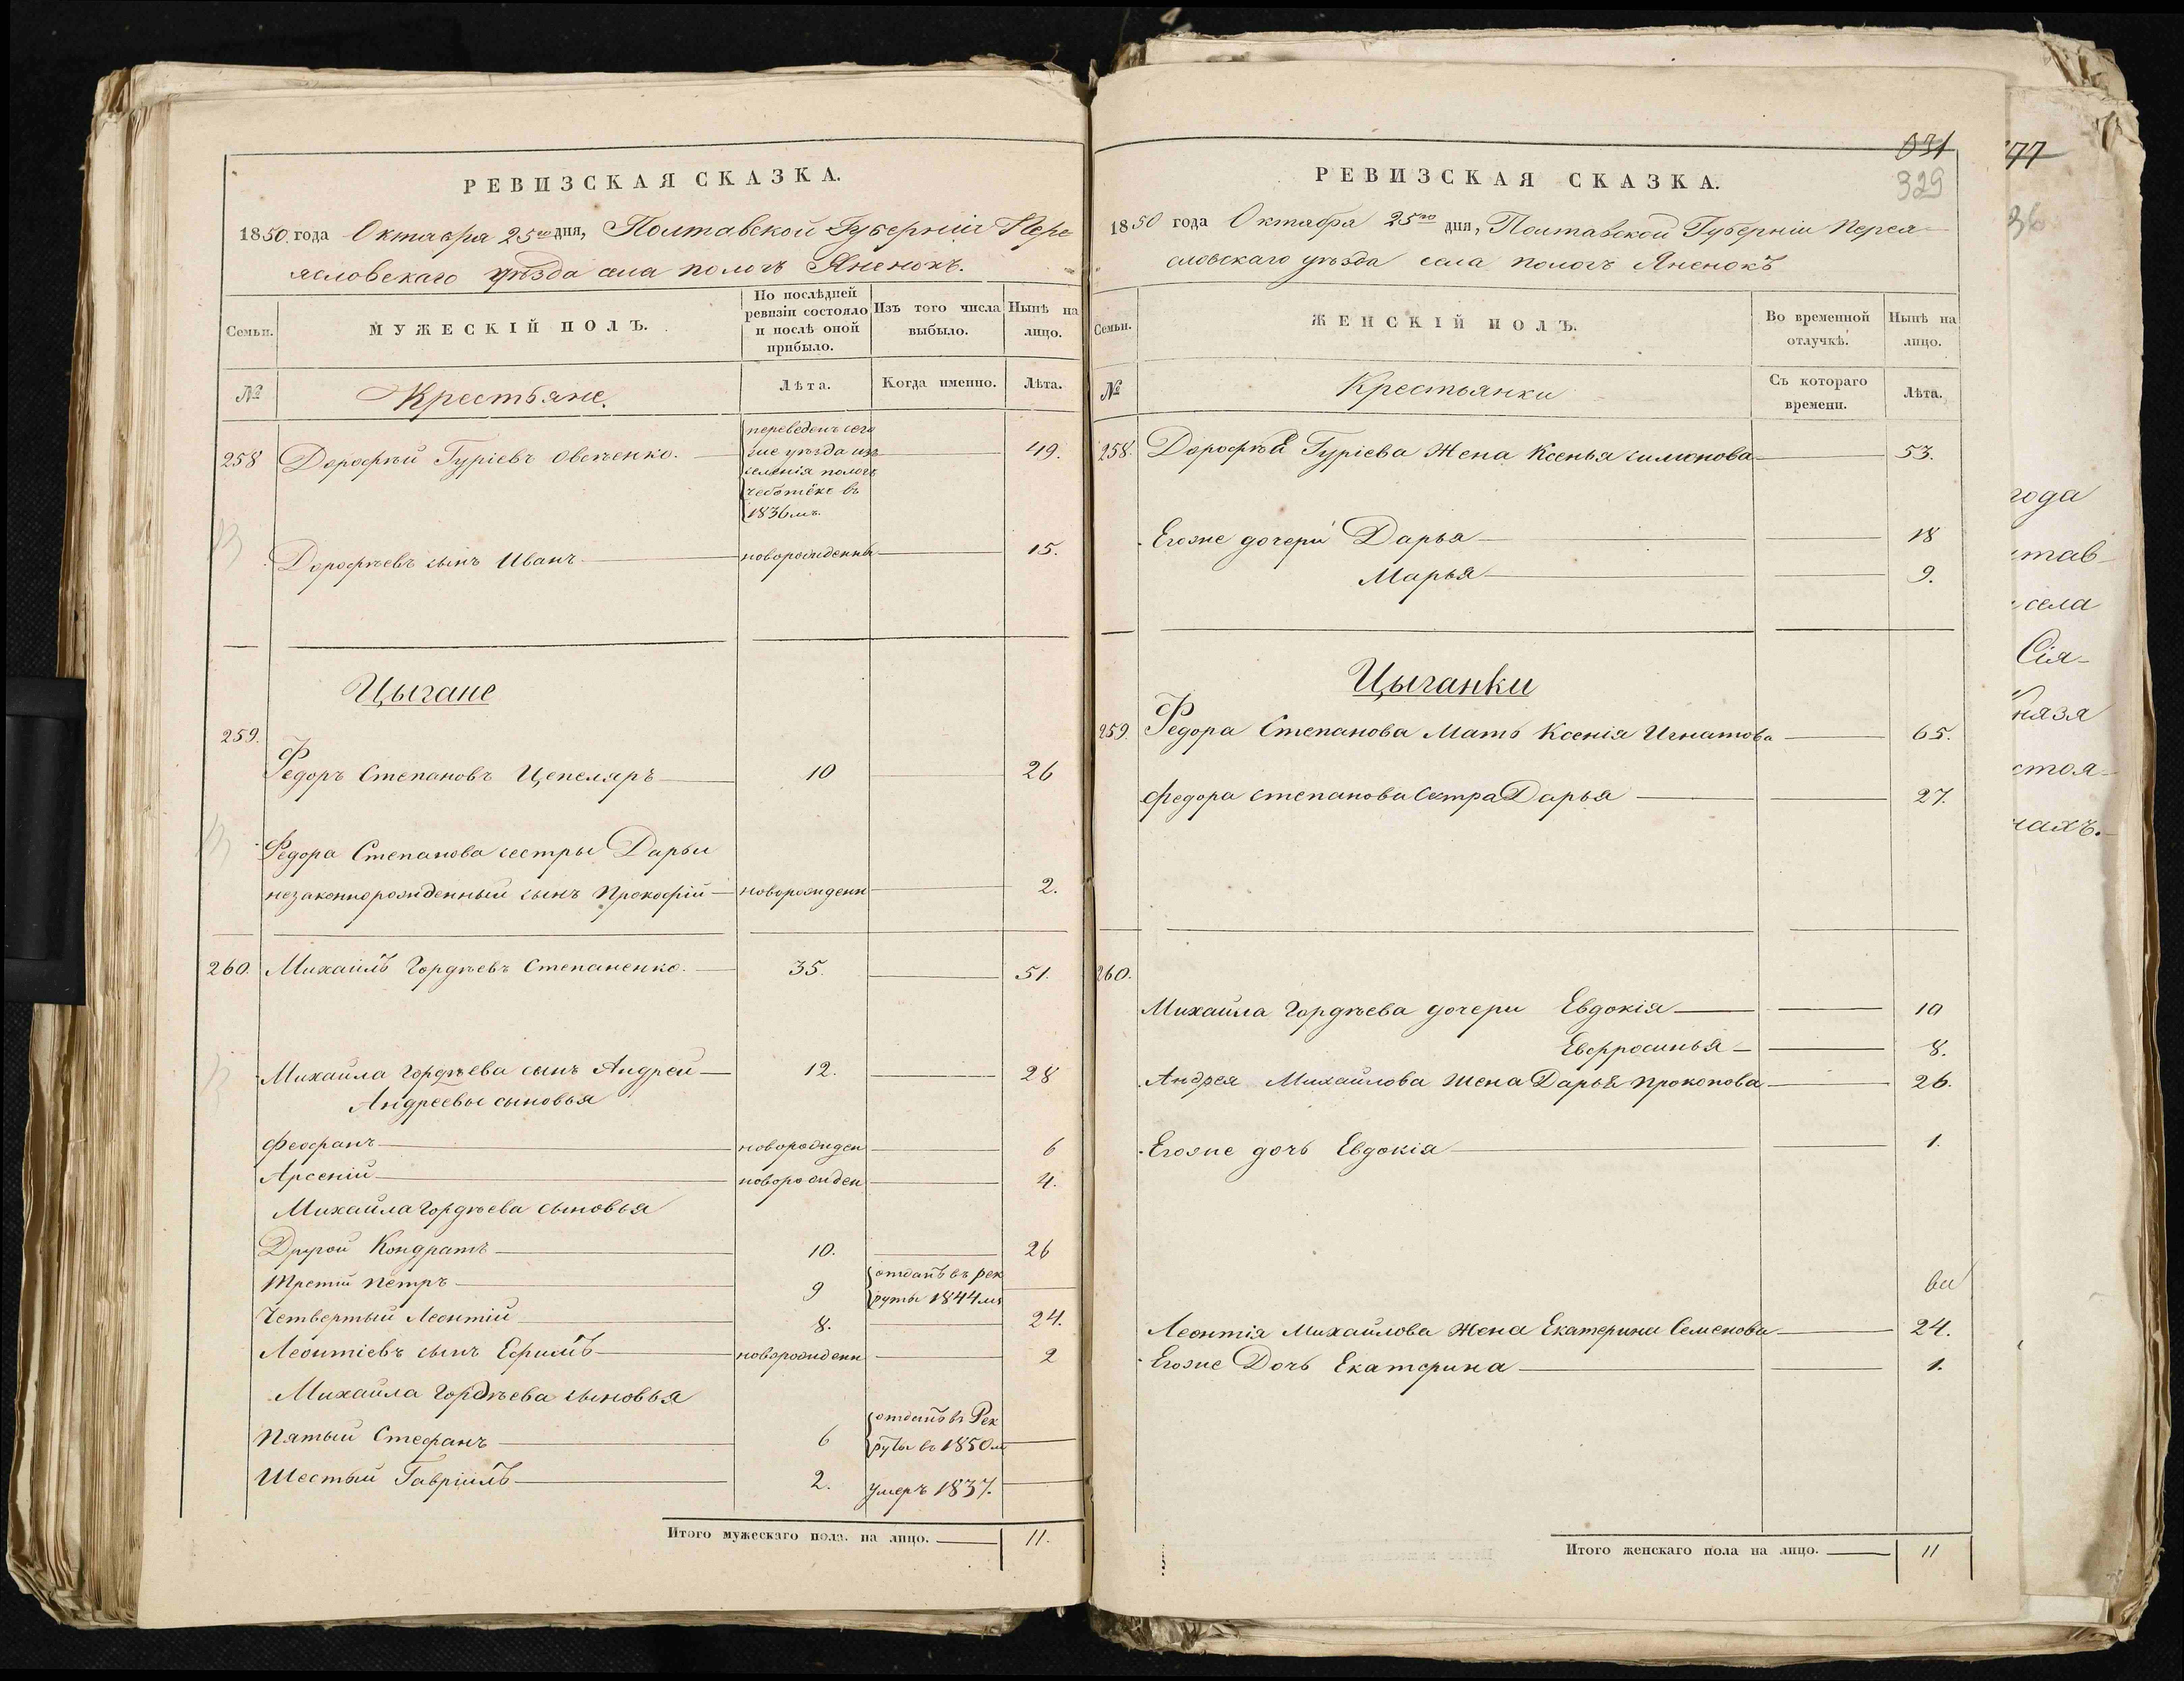 РЕВИЗСКАЯ СКАЗКА.
1850 года Октября 25го дня, Полтавской Губерніи Пере
ясловскаго уѣзда села пологъ Яненокъ.
Семьи.
МУЖЕСКІЙ ПОЛЪ.
По послѣдней ревизіи состояло и послѣ оной прибыло.
Изъ того числа выбыло.
Нынѣ на лицо.
№
Крестьяне.
Лѣта.
Когда именно.
Лѣта.
258 Дорофѣй Гуріевъ Овсѣенко. 49.
переведенъ сего
же уѣзда изъ
селенія пологъ
чеботёкъ въ
1836мъ.
Дорофѣевъ сынъ Иванъ новорожденны 15.
Цыгане
259.
Федоръ Степановъ Цепеляръ 10 26
Федора Степанова сестры Дарьи
незаконнорожденный сынъ Прокофій новорожденн 2.
260. Михаилъ Гордѣевъ Степаненко. 35. 51.
Михаила Гордѣева сынъ Андрей 12. 28
Андреевы сыновья
Феофанъ новорожден 6
Арсеній новорожден 4.
Михаила Гордѣева сыновья
Другой Кондратъ 10. 26
Третій Петръ 9 отданъ въ рек
руты 1844мъ
Четвертый Леонтій 8. 24.
Леонтіевъ сынъ Ефимъ новорожденн 2
Михаила Гордѣева сыновья
Пятый Стефанъ 6 отданъ въ Рек
руты въ 1850м
Шестый Гавріилъ 2. умеръ 1837.
Итого мужескаго пола на лицо. 11.
031
329
РЕВИЗСКАЯ СКАЗКА.
1850 года Октября 25го дня, Полтавской Губерніи Перея
словскаго уѣзда села пологъ Яненокъ
Семьи.
ЖЕНСКІЙ ПОЛЪ.
Во временной отлучкѣ.
Нынѣ на лицо.
№
Крестьянки
Съ котораго времени.
Лѣта.
258. Дорофѣя Гуріева Жена Ксенья симонова 53.
Егоже дочери Дарья 18
Марья 9.
Цыганки
259. Федора Степанова Мать Ксенія Игнатова 65.
Федора степанова Сестра Дарья 27.
260.
Михаила Гордѣева дочери Евдокія 10
Евфросинья 8.
Андрея Михайлова жена Дарья прокопова 26.
Егоже дочь Евдокія 1.
Леонтія Михайлова Жена Екатерина Семенова 24.
Егоже Дочь Екатерина 1.
Итого женскаго пола на лицо. 11
77
36
года
тав
села
Сія
нязя
стоя
чахъ.